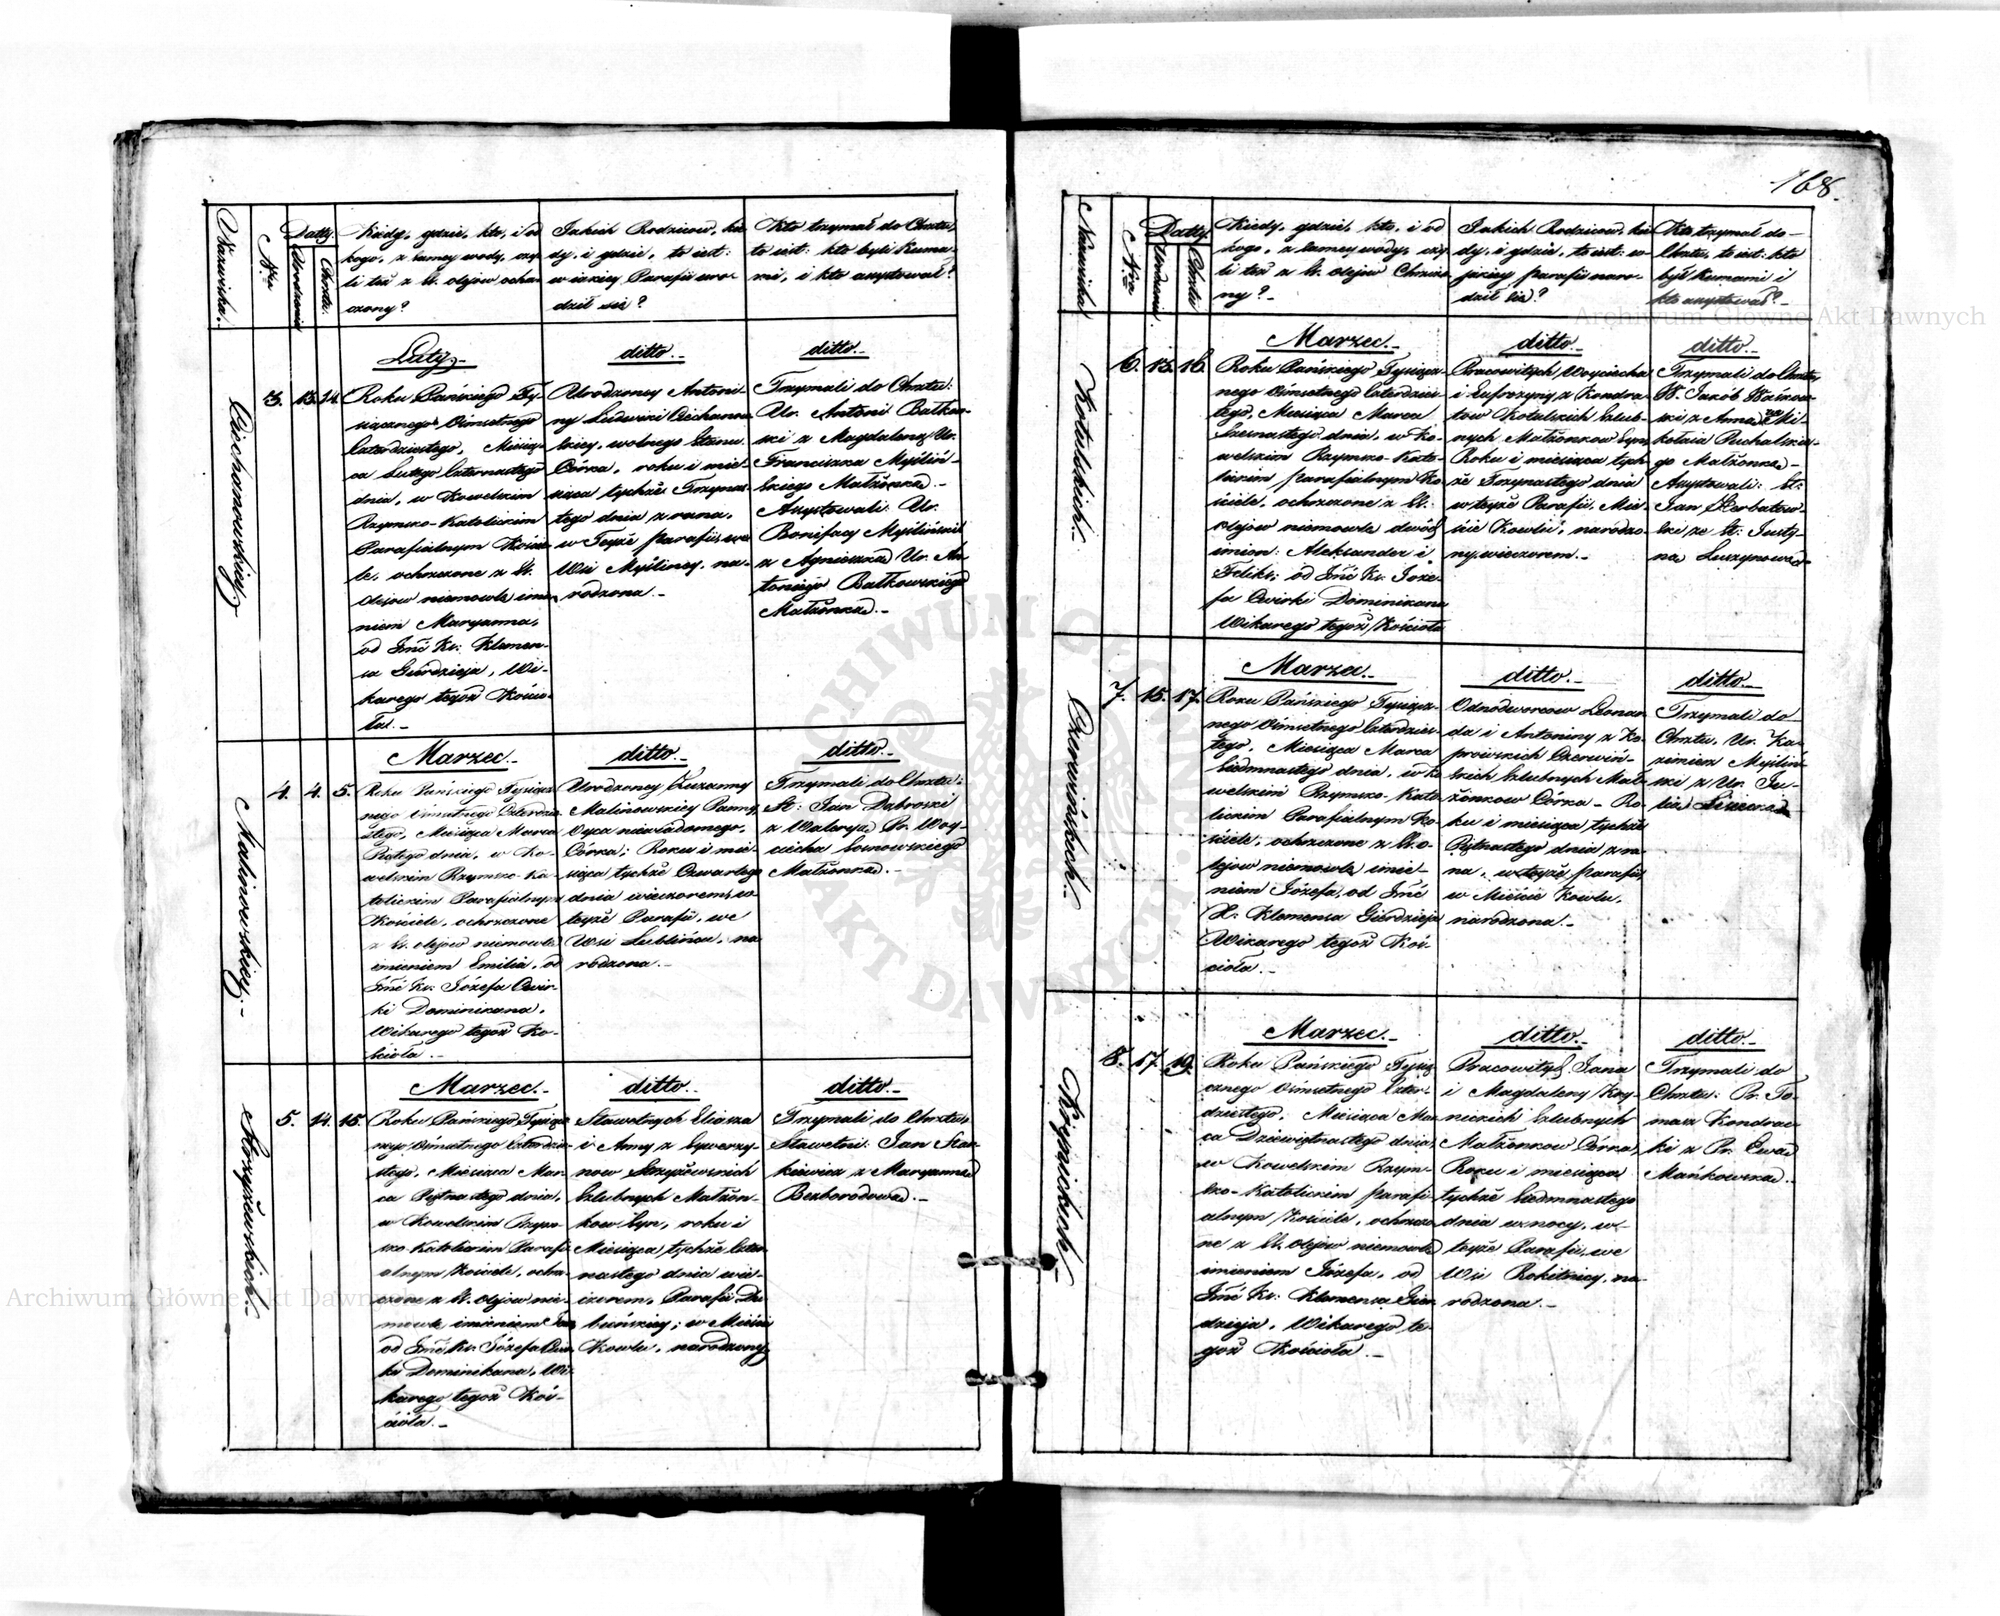 168.
Nazwiska.
Nra
Datty.
Urodzenia
Chrztu.
Kiedy, gdzie, kto, i od
kogo, z samey wody, czy
li też z S. olejow ochrz-
czony?
Jakich Rodzicow, kie
dy, i gdzie, to iest:
w iakiey Parafii uro-
dził się?
Kto trzymał do Chrztu,
to iest: kto byli Kuma-
mi, i kto assystował?
Ciechanowskiey
3. 13. 14.
Luty.-
Roku Pańskiego Ty-
siącznego Ośmsetnego
Czterdziestego, Miesią-
ca Lutego Czternastego
dnia, w Kowelskim
Rzymsko-Katolickim
Parafialnym Koście-
le, ochrzczone z S.
Olejow niemowle imie-
niem Maryanna,
od Jmć Xx: Klemen-
sa Gierdzieja, Wi-
karego tegoż Kościo-
ła.-
ditto.-
Urodzoney Antoni-
ny Ludwiki Ciechanow-
skiey, wolnego Stanu
Córka, roku i mie-
siąca tychże Trzynas-
tego dnia z rana,
w Teyże parafii we
Wsi Myśliney, na-
rodzona.-
ditto.-
Trzymali do Chrztu:
Ur. Antoni Bałkow-
ski z Magdaleną Ur.
Franciszka Myśliń-
skiego Małżonką.-
Assystowali: Ur.
Bonifacy Myśliński
z Agnieszką Ur. An-
toniego Bałkowskiego
Małżonką.-
Malinowskiey.-
4. 4. 5.
Marzec.-
Roku Pańskiego Tysiącz-
nego Ośmsetnego Czterdzie-
stego, Miesiąca Marca
Piątego dnia, w Ko-
welskim Rzymsko-Ka-
tolickim Parafialnym
Kościele, ochrzczone
z S. olejow niemowle
imieniem Emilia, od
Jmć Xx. Józefa Cwir-
ki Dominikana,
Wikarego tegoż Ko-
ścioła.-
ditto.-
Urodzoney Zuzanny
Malinowskiey Panny,
Oyca niewiadomego,
Córka; Roku i mie-
siąca tychże Czwartego
dnia wieczorem, w
teyże Parafii, we
Wsi Lublińcu, na
rodzona.-
ditto.-
Trzymali do Chrztu:
St: Jan Dąbroski
z Waleryą Pr. Woy-
ciecha Sosnowskiego
Małżonką.-
Strzyżewskich.-
5. 14. 15.
Marzec.-
Roku Pańskiego Tysiącz-
nego Ośmsetnego Czterdzie-
stego, Miesiąca Mar-
ca Piętnastego dnia,
w Kowelskim Rzym-
sko-Katolickim Parafi-
alnym Kościele, ochrz-
czone z S. Olejow nie-
mowle imieniem Jan
od Jmć Xx. Józefa Cwir-
ki Dominikana, Wi-
karego tegoż Koś-
cioła.-
ditto.-
Sławetnych Eliasza
i Anny z
Strzyżewskich
Szlubnych Małżon-
kow Syn, roku i
Miesiąca tychże Czter-
nastego dnia wie-
czorem, Parafii
w Mieście
Kowlu, narodzony
ditto.-
Trzymali do Chrztu,
Sławetni: Jan
z Maryanną
Bezborodową.-
Nazwiska
Nra
Datty.
Urodzenia.
Chrztu
Kiedy, gdzie, kto, i od
kogo, z samey wody, czy
li też z S. olejow Chrzczo
ny?-
Jakich Rodzicow, kie
dy, i gdzie, to iest: w
jakiey parafii uro-
dził się?
Kto trzymał do-
Chrztu, to iest: kto
byli Kumami i
kto assystował?-
Kotulskich.-
6. 13. 16.
Marzec.-
Roku Pańskiego Tysiącz-
nego Ośmsetnego Czterdzies-
tego, Miesiąca Marca
Szesnastego dnia, w Ko-
welskim Rzymsko-Kato-
lickim parafialnym Ko-
ściele, ochrzczone z S.
Olejow niemowle dwóch
imion: Aleksander i
Feliks, od Jmć Xx. Józe-
fa Cwirki Dominikana
Wikarego tegoż Kościoła
ditto.-
Pracowitych Woyciecha
i Eufrozyny z Kondra-
tow Kotulskich Szlub-
nych Małżonkow Syn,
Roku i miesiąca tych-
że Trzynastego dnia
w teyże Parafii, Mie-
ście Kowlu, narodzo-
ny, wieczorem.-
ditto.-
Trzymali do Chrztu,
W. Jakób
ski z Anną W. Mi-
kołaia Puchalskie-
go Małżonką.-
Assystowali: St:
Jan Herbatow-
ski ze St: Justy-
ną
Czerwińskich.-
7. 15. 17.
Marzec.-
Roku Pańskiego Tysiącz-
nego Ośmsetnego Czterdzies-
tego, Miesiąca Marca
Siedmnastego dnia, w Ko-
welskim Rzymsko-Kato-
lickim Parafialnym Ko-
ściele, ochrzczone z S. o-
lejow niemowle imie-
niem Józefa, od Jmć
X: Klemensa Gierdzieja
Wikarego tegoż Koś-
cioła.-
ditto.-
Odnodworcow Leonar-
da i Antoniny z Ko-
Czerwiń-
skich Szlubnych Mał-
żonkow Córka-Ro-
ku i miesiąca tychże
Piętnastego dnia z ra
na, w teyże parafii,
w Mieście Kowlu,
narodzona.-
ditto.-
Trzymali do
Chrztu, Ur. Ka-
zimierz Myśliń-
ski z Ur. Ju-
lią
Krynickich.-
8. 17. 19.
Marzec.-
Roku Pańskiego Tysią
cznego Ośmsetnego Czter-
dziestego, Miesiąca Mar
ca Dziewiętnastego dnia,
w Kowelskim Rzym-
sko-Katolickim parafi-
alnym Kościele, ochrzczo
ne z S. olejow niemowle
imieniem Józefa, od
Jmć Xx. Klemensa Gier
dzieja, Wikarego te-
goż Kościoła.-
ditto.-
Pracowitych Jana
i Magdaleny Kry-
nickich Szlubnych
Małżonkow Córka,
Roku i miesiąca
tychże Siedmnastego
dnia w nocy, w-
teyże Parafii, we
Wsi Rokitnicy, na-
rodzona.-
ditto.-
Trzymali do
Chrztu: Pr. To-
masz Kondrac-
ki z Pr. Ewą
Mańkowską.-
Archiwum Główne Akt Dawnych
Archiwum Główne Akt Dawnych
ARCHIWUM GŁÓWNE AKT DAWNYCH